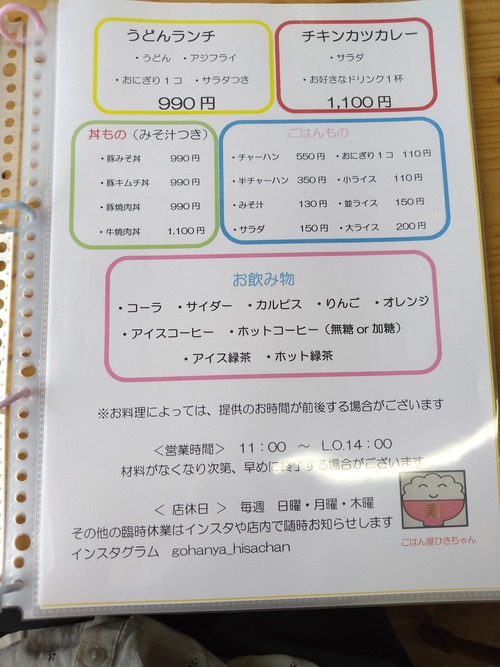 うどんランチ
・うどん ・アジフライ
・おにぎり1コ ・サラダつき
990円
チキンカツカレー
・サラダ
・お好きなドリンク1杯
1,100円
丼もの（みそ汁つき）
・豚みそ丼 990円
・豚キムチ丼 990円
・豚焼肉丼 990円
・牛焼肉丼 1,100円
ごはんもの
・チャーハン 550円 ・おにぎり1コ 110円
・半チャーハン 350円 ・小ライス 110円
・みそ汁 130円 ・並ライス 150円
・サラダ 150円 ・大ライス 200円
お飲み物
・コーラ ・サイダー ・カルピス ・りんご ・オレンジ
・アイスコーヒー ・ホットコーヒー（無糖 or 加糖）
・アイス緑茶 ・ホット緑茶
※お料理によっては、提供のお時間が前後する場合がございます
＜営業時間＞ 11：00 ～ L.O.14：00
材料がなくなり次第、早めに終了する場合がございます
＜ 店休日 ＞ 毎週 日曜・月曜・木曜
その他の臨時休業はインスタや店内で随時お知らせします
インスタグラム gohanya_hisachan
寿
ごはん屋ひさちゃん